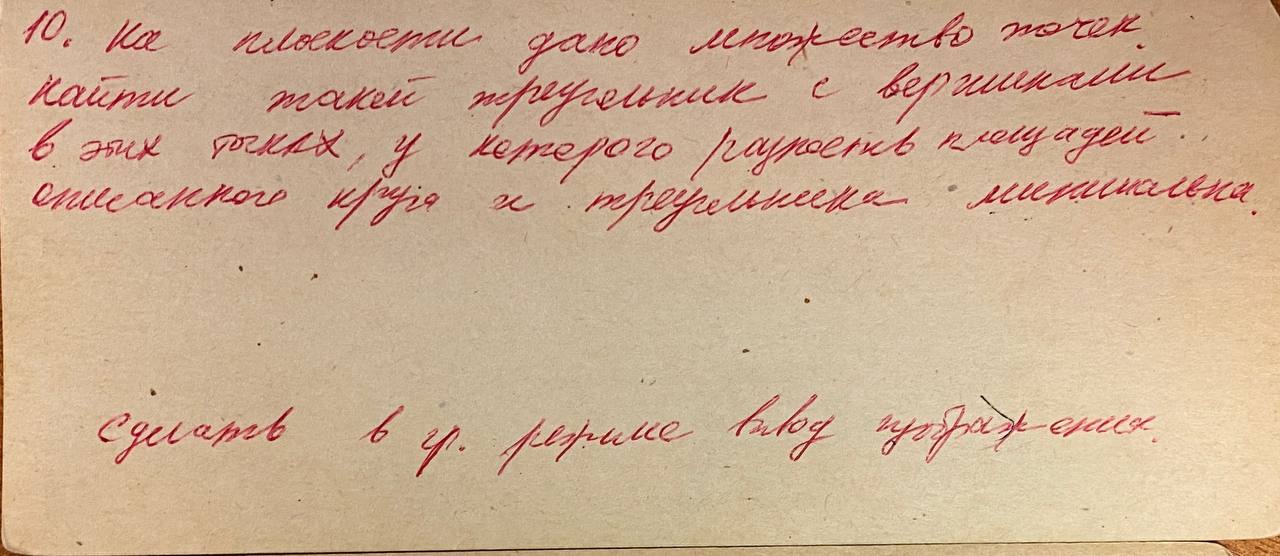 10. На плоскости дано множество точек.
Найти такой треугольник с вершинами
в этих точках, у которого разность площадей
описанного круга и треугольника минимальна.
Сделать в гр. режиме вывод изображения.